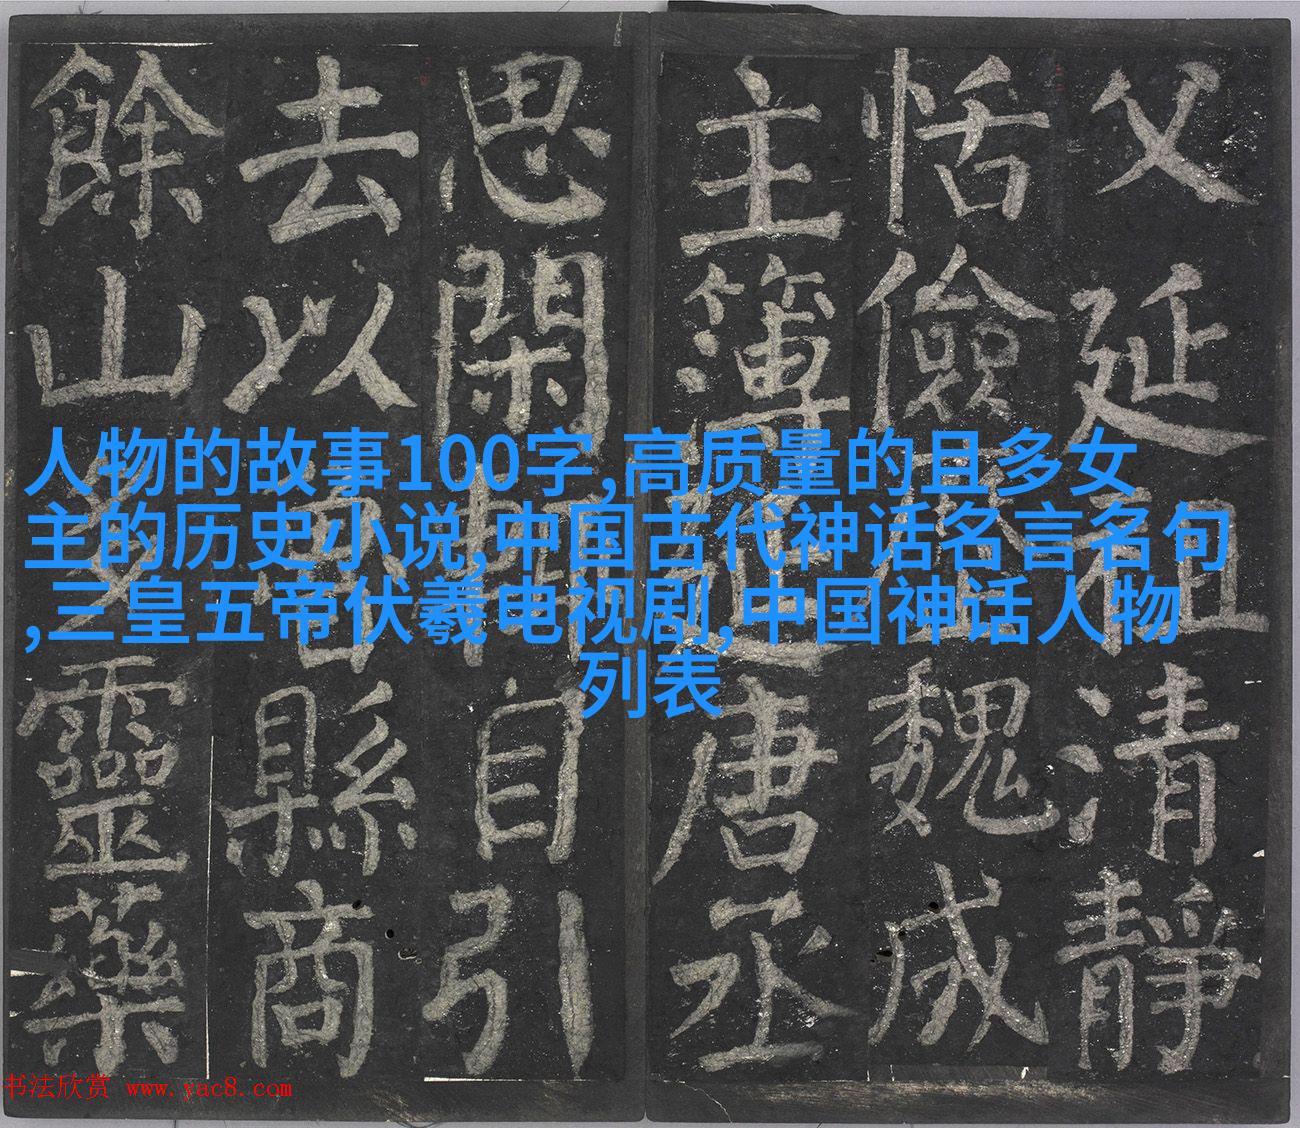 父延祖清靜
恬儉魏成
主簿延唐丞
思閑自引
去以縣商
餘山多靈藥
人物的故事100字,高质量的且多女
主的历史小说,中国古代神话名言名句
,三皇五帝伏羲电视剧,中国神话人物
列表
书法欣赏 www.yac8.com